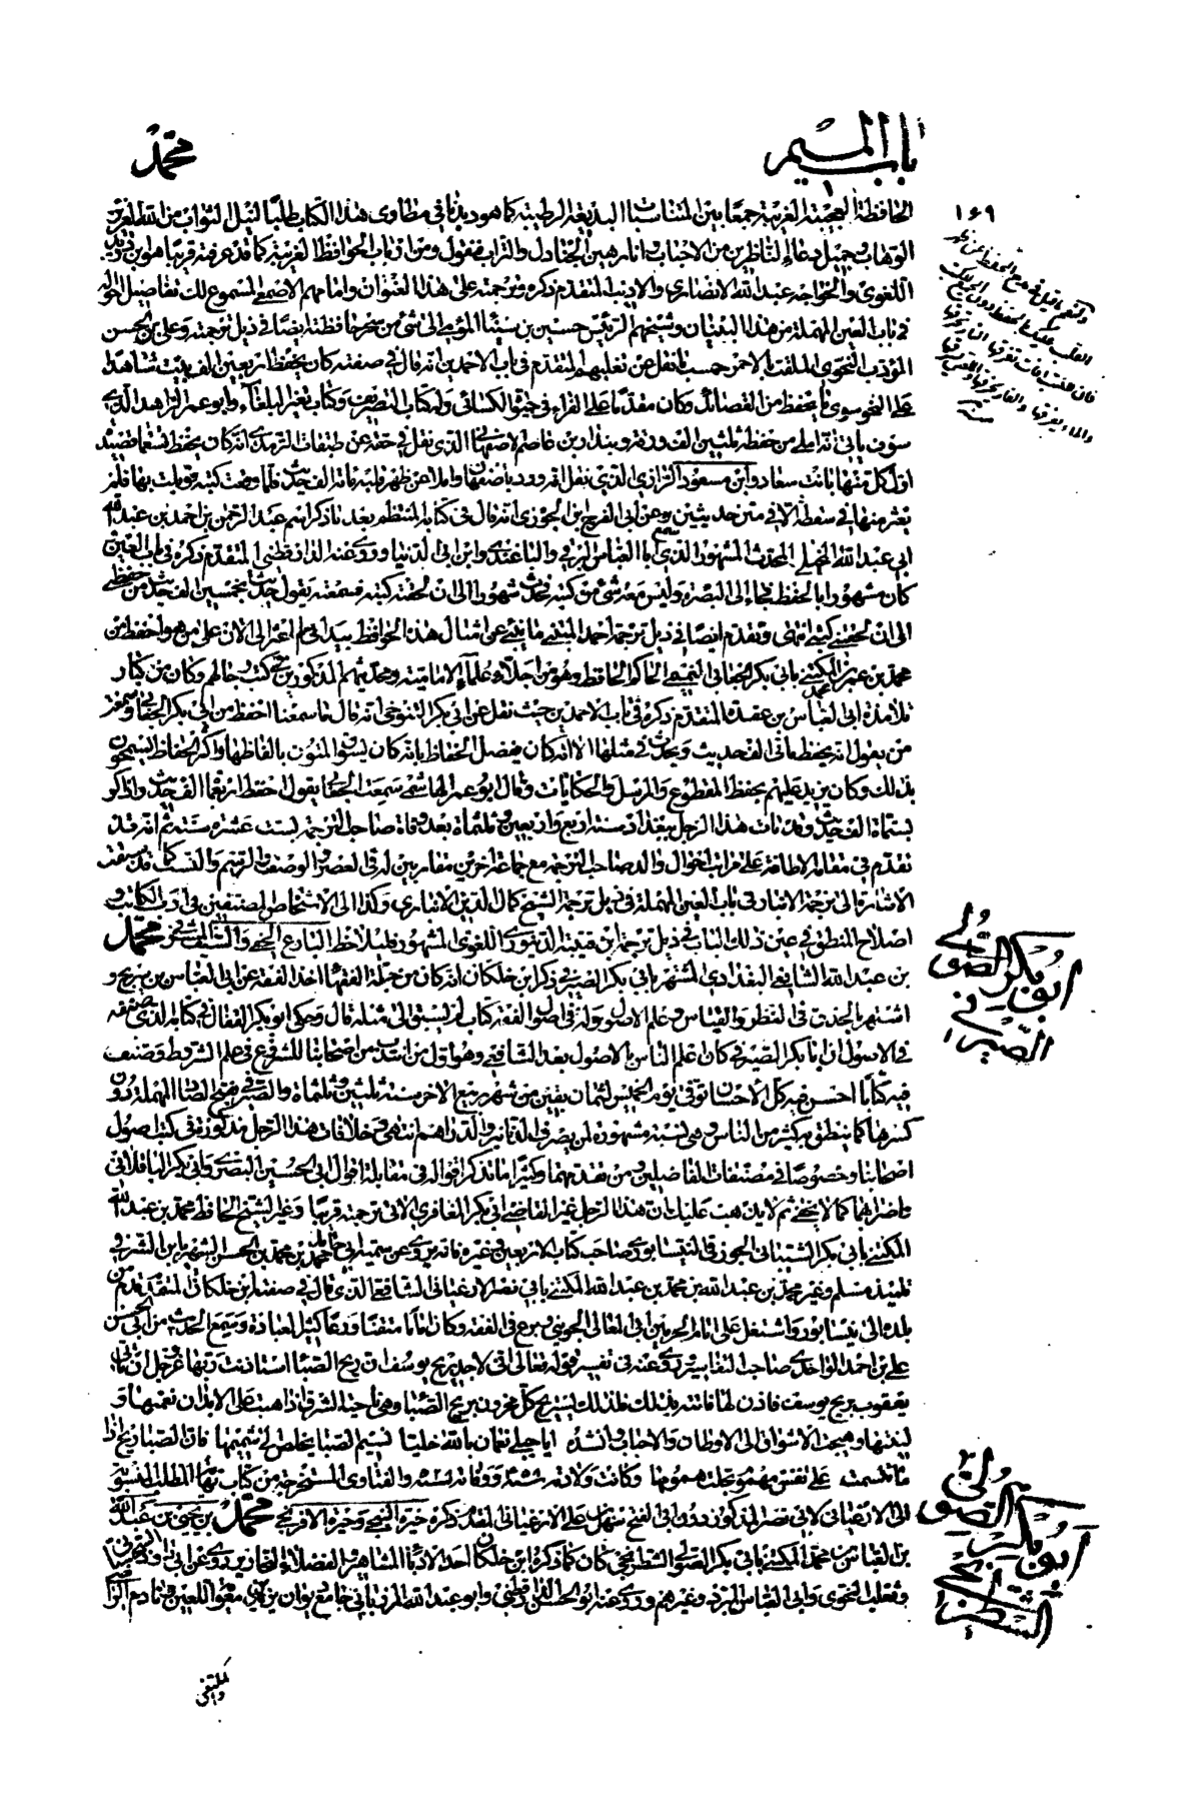 باب الميم
محمد
١٦٩
الحافظة العجيبة الغريبة جمعا بين المتناسبات البديعة الرطيبة كما هو ديدننا في مطاوي هذا الكتاب طلبا لنيل الثواب من الله العزيز
الوهاب وجميل دعاء الناظرين من الاحباب وانا رهين الجنادل والتراب فنقول ومن ارباب الحوافظ الغريبة كما قد عرفته قريبا هو ابن دريد
اللغوي والخواجه عبد الله الانصاري والاديب المتقدم ذكره وترجمته على هذا العنوان وامامهم الاصمعي المسموع لك تفاصيل احواله
في باب العين المهملة من هذا البنيان وشيخهم الرئيس حسين بن سينا المؤمى الى شيء من سحر حافظته ايضا في ذيل ترجمته وعلي بن الحسن
المؤدب النحوي الملقب بالاحمر حسب ما نقل عن ثعلبهم المتقدم في باب الاحمدين انه قال في صفته كان يحفظ اربعين الف بيت شاهدا
على النحو سوى ما يحفظ من القصائد وكان مقدما على الفراء في حيوة الكسائي وله كتاب التصريف وكتاب تفنن البلغاء وابو عمر الزاهد الذي
سوف ياتي انه املى من حفظه ثلثين الف ورقة وبندار بن عاصم الاصبهاني الذي نقل في حقه عن طبقات الزبيدي انه كان يحفظ تسعمائة قصيدة
اول كل منها بانت سعاد وابن مسعود الرازي الذي نقل انه ورد باصفهان واملا عن ظهر قلبه مائة الف حديث فلما وصلت كتبه قوبلت بها فلم
يعثر منها في سقطه الا في متن حديثين وعن ابي الفرج ابن الجوزي انه قال في كتابه المنتظم بعد ما ذكر اسم عبد الرحمن بن احمد بن عبد الله
ابي عبد الله الختلي المحدث المشهور الذي سمع ابا العباس البرتي والباغندي وابن ابي الدنيا وروى عنه الدارقطني المتقدم ذكره في باب العين
كان مشهورا بالحفظ فجاء الى البصرة وليس معه شيء من كتبه فحدث شهورا الى ان لحقته كتبه فسمعته يقول حدثت بخمسين الف حديث من حفظي
الى ان لحقتني كتبي انتهى وتقدم ايضا في ذيل ترجمة احمد المتنبي ما ينبئ عن امثال هذه الحوافظ بيد اني لم اعثر الى الان على من هو احفظ من
محمد بن عمر المكنى بابي بكر الجعابي التميمي الحاكم الحافظ وهو من اجلاء علماء الامامية ومحدثيهم المذكورين في كتب رجالهم وكان من كبار
تلامذة ابي العباس بن عقدة المتقدم ذكره في باب الاحمدين حيث نقل عن ابي بكر التنوخي انه قال ما سمعنا احفظ من ابي بكر الجعابي وسمعت
من يقول انه يحفظ مائتي الف حديث ويحدث في مثلها الا انه كان يفضل الحفاظ بانه كان يسوق المتون بالفاظها واكثر الحفاظ يتسمحون
بذلك وكان يزيد عليهم بحفظ المقطوع والمرسل والحكايات وقال ابو عمر الهاشمي سمعت الجعابي يقول احفظ اربعمائة الف حديث واذاكر
بستمائة الف حديث وقد مات هذا الرجل ببغداد سنة اربع واربعين وثلثمائة بعد وفاة صاحب الترجمة بست عشرة سنة ثم انه قد
تقدم في مقام الاطافة على مراتب احوال والد صاحب الترجمة مع جماعة اخرين مقاربين له في العصر والوصف والرسم والنسب كما قد سبقت
الاشارة الى ترجمة الانبار في باب العين المهملة في ذيل ترجمة الشيخ كمال الدين الانباري وكذا الى الاشخاص المصنفين في ادب الكاتب و
اصلاح المنطق في عين ذلك الباب في ذيل ترجمة ابن قتيبة الدينوري اللغوي المشهور فليلاحظ البارع الحفي والشيخ المشفق محمد
بن عبد الله الشافعي البغدادي المشتهر بابي بكر الصيرفي ذكر ابن خلكان انه كان من جملة الفقهاء اخذ الفقه عن ابي العباس بن سريج و
اشتهر بالحذق في النظر والقياس وعلم الاصول وله في اصول الفقه كتاب لم يسبق الى مثله قال وحكى ابو بكر القفال في كتابه الذي صنفه
في الاصول ان ابا بكر الصيرفي كان اعلم الناس بالاصول بعد الشافعي وهو اول من انتدب من اصحابنا للشروع في علم الشروط وصنف
فيه كتابا احسن فيه كل الاحسان توفي يوم الخميس لثمان بقين من شهر ربيع الاخر سنة ثلثين وثلثمائة والصيرفي بفتح الصاد المهملة دون
كسرها كما ينطق به كثير من الناس وهي نسبة مشهورة لمن يصرف الدنانير والدراهم انتهى وخلافات هذا الرجل مذكورة في كتب اصول
اصحابنا وخصوصا في مصنفات الفاضلين ومن تقدمهما وكثيرا ما تذكر اقواله في مقابلة اقوال ابي الحسين البصري وابي بكر الباقلاني
واضرابهما كما لا يخفى ثم لا يذهب عليك ان هذا الرجل غير القاضي ابي بكر المعافري الاتي ترجمته قريبا وغير الشيخ الحافظ محمد بن عبد الله
المكنى بابي بكر الشيباني الجوزقي النيسابوري صاحب كتاب الاربعين وغيره فانه يروي عن سميه ابي حامد بن محمد بن الحسن الشهير بابن الشرقي
تلميذ مسلم وغير محمد بن عبد الله بن محمد بن عبد الله المكنى بابي نصر الارغياني الشافعي الذي قال في صفته ابن خلكان المتقدم قدم من
بلده الى نيسابور واشتغل على امام الحرمين ابي المعالي الجويني وبرع في الفقه وكان اماما مفتنا ورعا كثير العبادة وسمع الحديث من ابي الحسن
علي بن احمد الواحدي صاحب التفاسير وروى عنه في تفسير قوله تعالى اني لاجد ريح يوسف ان ريح الصبا استاذنت ربها عز وجل ان تاتي
يعقوب بريح يوسف فاذن لها فاتته بذلك فلذلك يستريح كل محزون بريح الصبا وهي ناحية المشرق اذا هبت على الابدان نعمتها و
لينتها وهيجت الاشواق الى الاوطان والاحباب وانشد ايا جبلي نعمان بالله خليا نسيم الصبا يخلص الي نسيمها فان الصبا ريح اذا
ما تنسمت على نفس مهموم تجلت همومها وكانت ولادته سنة ووفاته سنة والفتاوى المستخرجة من كتاب نهاية المطلب المنسوبة
الى الارغياني لابي نصر المذكور دون ابي الفتح سهل بن علي الارغياني المتقدم ذكره خيرة النهج وخيرة الافرنج محمد بن يحيى بن عبد الله
بن العباس بن محمد المكنى بابي بكر الصولي الشطرنجي كان كما ذكره ابن خلكان احد الادباء المشاهير الفضلاء المجازين روى عن ابي داود السجستاني
وثعلب النحوي وابي العباس المبرد وغيرهم وروى عنه ابو الحسن الدارقطني وابو عبد الله المرزباني
ابو بكر الصولي
الصيرفي
ابو بكر الصولي
الشطرنجي